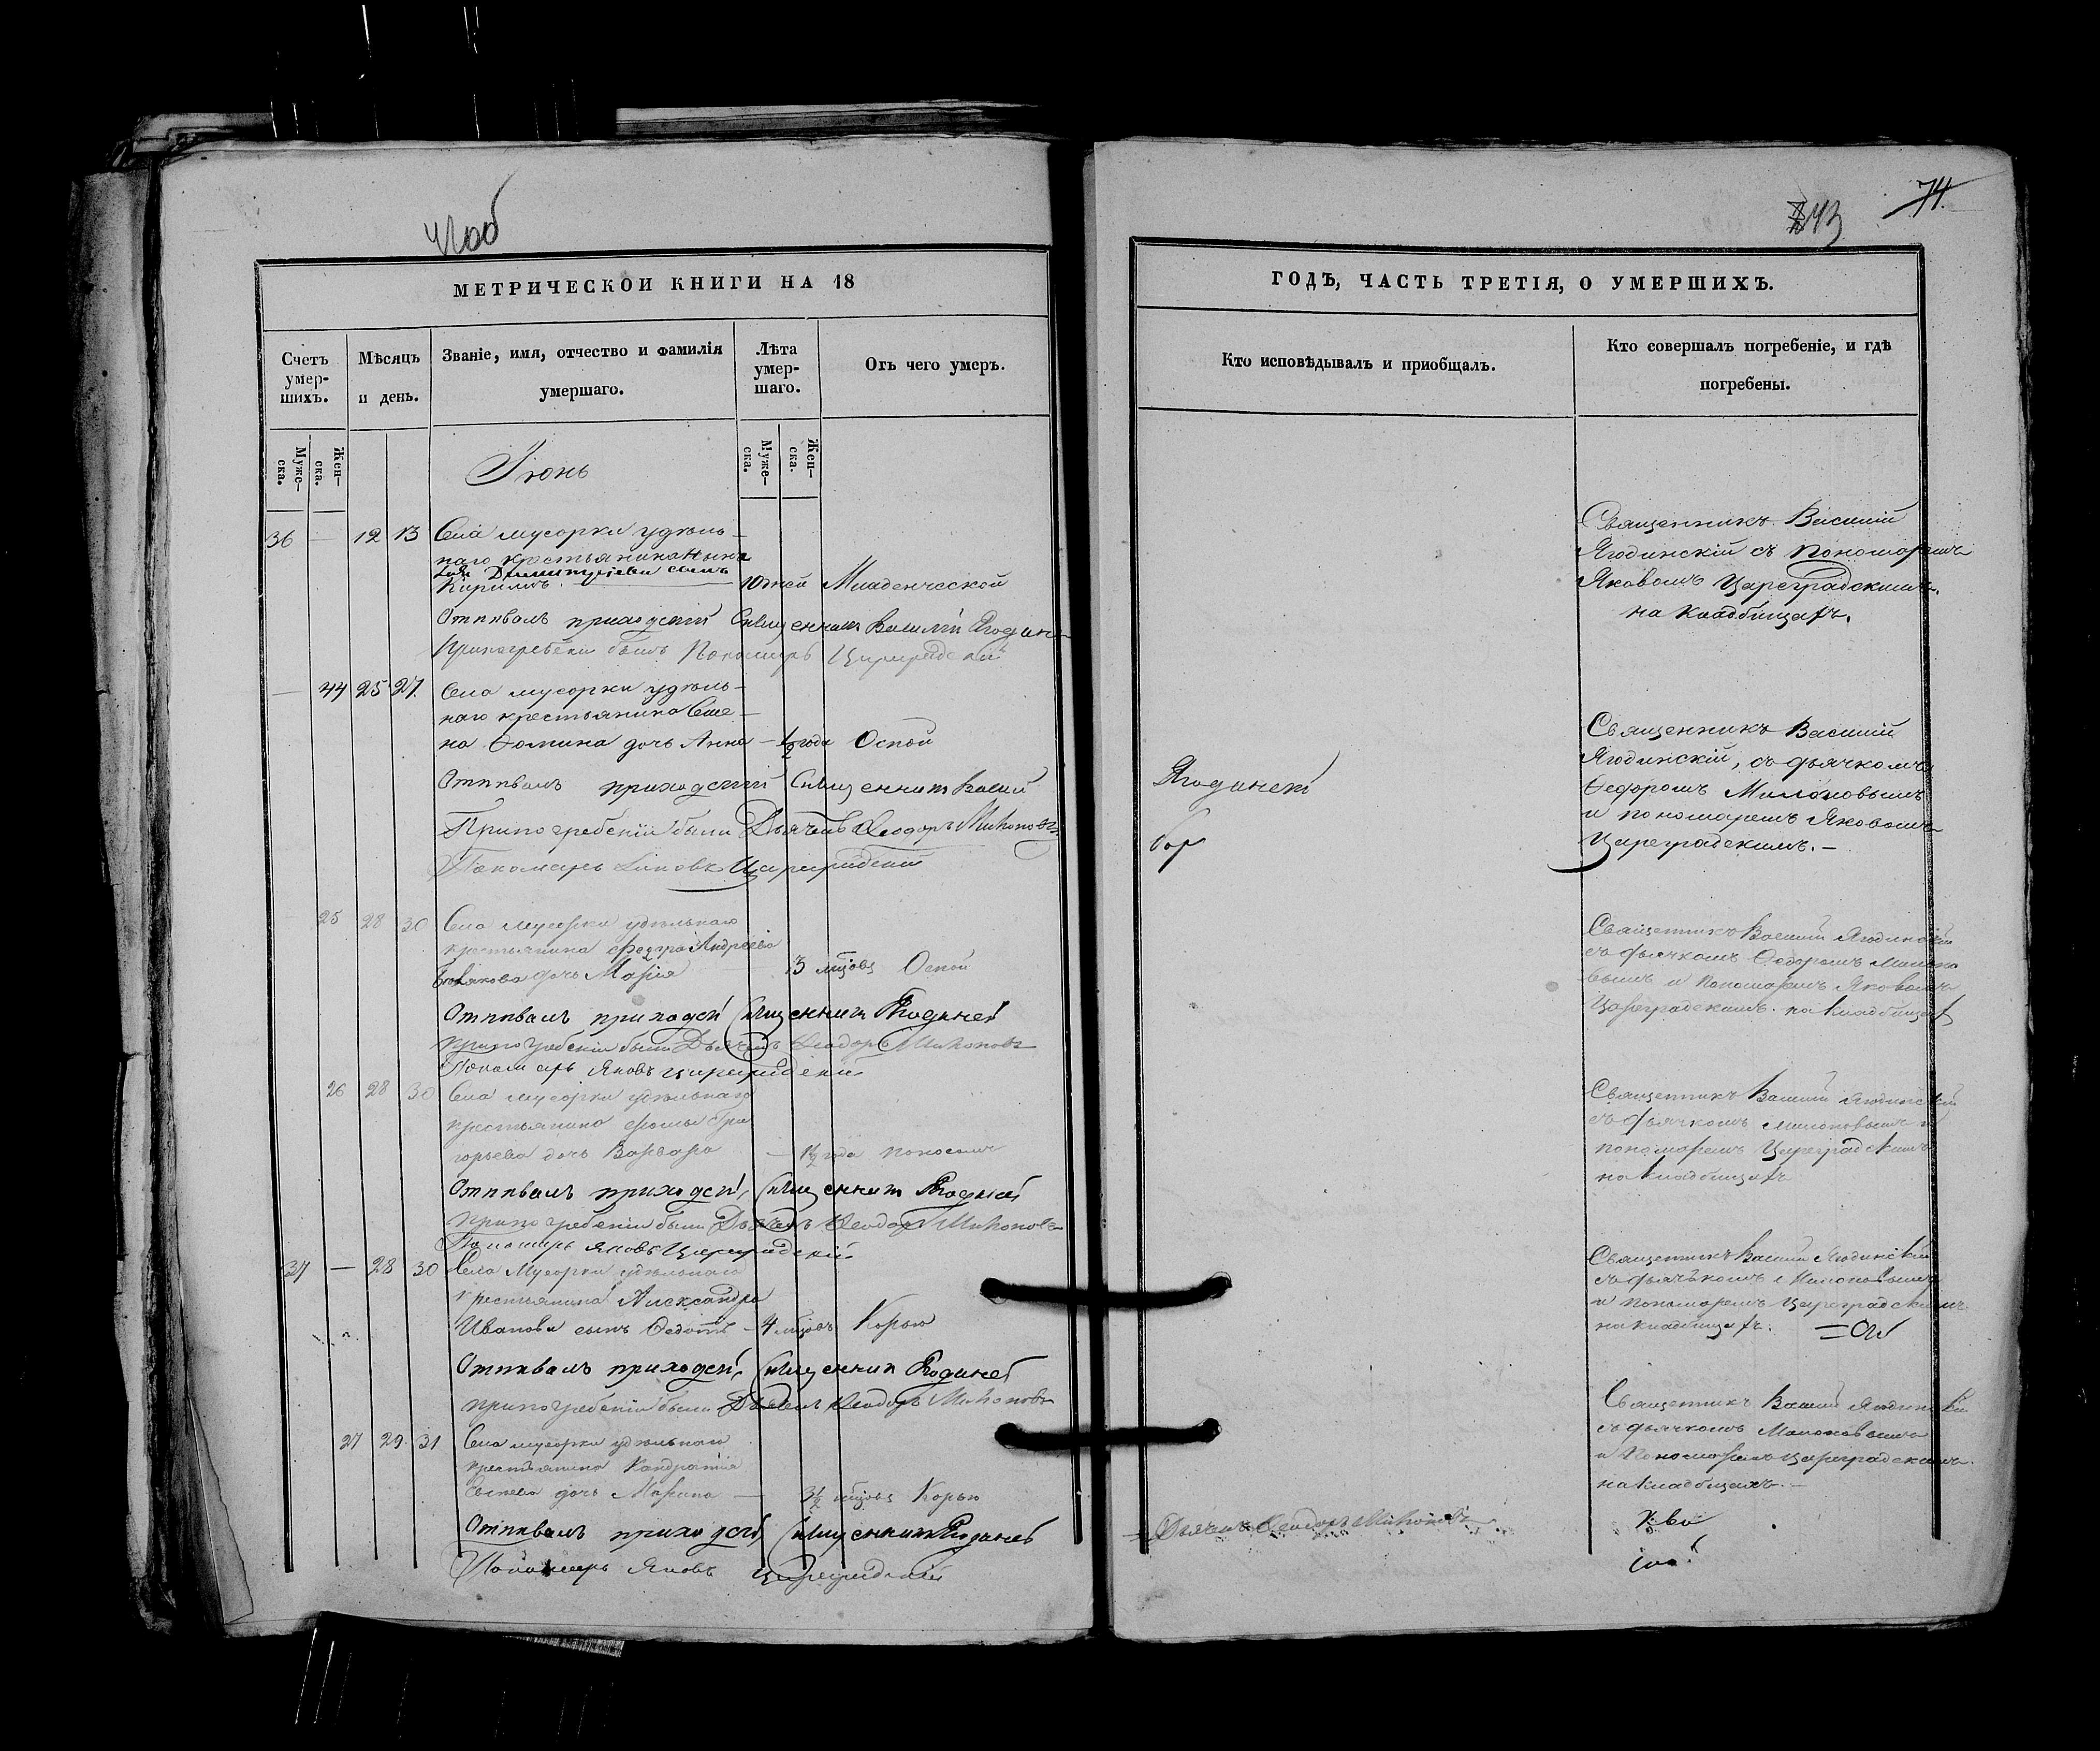 МЕТРИЧЕСКОЙ КНИГИ НА 18
Счетъ умер-шихъ.
Мѣсяцъ и день.
Званіе, имя, отчество и фамилія умершаго.
Лѣта умер-шаго.
Отъ чего умеръ.
Муже-ска.
Жен-ска.
Муже-ска.
Жен-ска.
Іюнь
36 — 12 13 Села мусорки удѣль-
наго крестьянина
Димитріева сынъ
Кирилъ. 10 дней Младенческой
Отпѣвалъ приходскій Священникъ Василій Ягодин
При погребеніи былъ Пономарь Цареградскій
— 44 25 27. Села мусорки удѣль-
наго крестьянина Семе-
на Фомина дочь Анна — ½ года Оспой
Отпѣвалъ приходскій Священникъ Васил
При погребеніи были Дьячекъ Феодоръ Милоновъ
Пономарь Іаковъ Цареградскій
25 28 30 Села Мусорки удѣльнаго
крестьянина Федора Андреева
дочь Марія 3 мцовъ Оспой
Отпѣвалъ приходскій Священникъ Ягодинск
При погребеніи были Дьячекъ Феодоръ Милоновъ
Пономарь Яковъ Цареградскій
26 28 30 Села Мусорки удѣльнаго
крестьянина Фомы Гри
горьева дочь Варвара — 1½ года поносомъ
Отпѣвалъ приходскі, Священникъ Ягодинск
При погребеніи были Дьячекъ Феодоръ Милоновъ
Пономарь Яковъ Цареградскій
37 — 28 30 Села Мусорки удѣльнаго
крестьянина Александра
Иванова сынъ Федотъ — 4 мцовъ Корью
Отпѣвалъ приходскі, Священник Ягодинск
При погребеніи были Дьячекъ Феодоръ Милоновъ
27 29. 31 Села мусорки удѣльнаго
крестьянина Кондратія
дочь Марина — 3½ мцовъ Корью
Отпѣвалъ приходскі Священникъ Ягодинск
Пономарь Яковъ Цареградскій
74.
ГОДЪ, ЧАСТЬ ТРЕТІЯ, О УМЕРШИХЪ.
Кто исповѣдывалъ и пріобщалъ.
Кто совершалъ погребеніе, и гдѣ погребены.
Священникъ Василій
Ягодинскій съ пономаремъ
Яковомъ Цареградскимъ.
на кладбищахъ.
Ягодинскій
Священникъ Василій
Ягодинскій, съ дьячкомъ
Федоромъ Милоновымъ
и пономаремъ Яковомъ
Цареградскимъ. —
Священникъ Василій Ягодинскій
съ дьячкомъ Федоромъ Милоно
вымъ и пономаремъ Яковомъ
Цареградскимъ. на кладбищахъ
Священникъ Василій Ягодинскій
съ дьячкомъ Милоновымъ и
пономаремъ Цареградскимъ
на кладбищахъ
Священникъ Василій Ягодинскій
съ дьячкомъ Милоновымъ
и пономаремъ Цареградскимъ
на кладбищахъ.
Священникъ Василій Ягодинскій
съ дьячкомъ Милоновымъ
и Пономаремъ Цареградскимъ.
на кладбищахъ. —
Дьячекъ Феодоръ Милоновъ